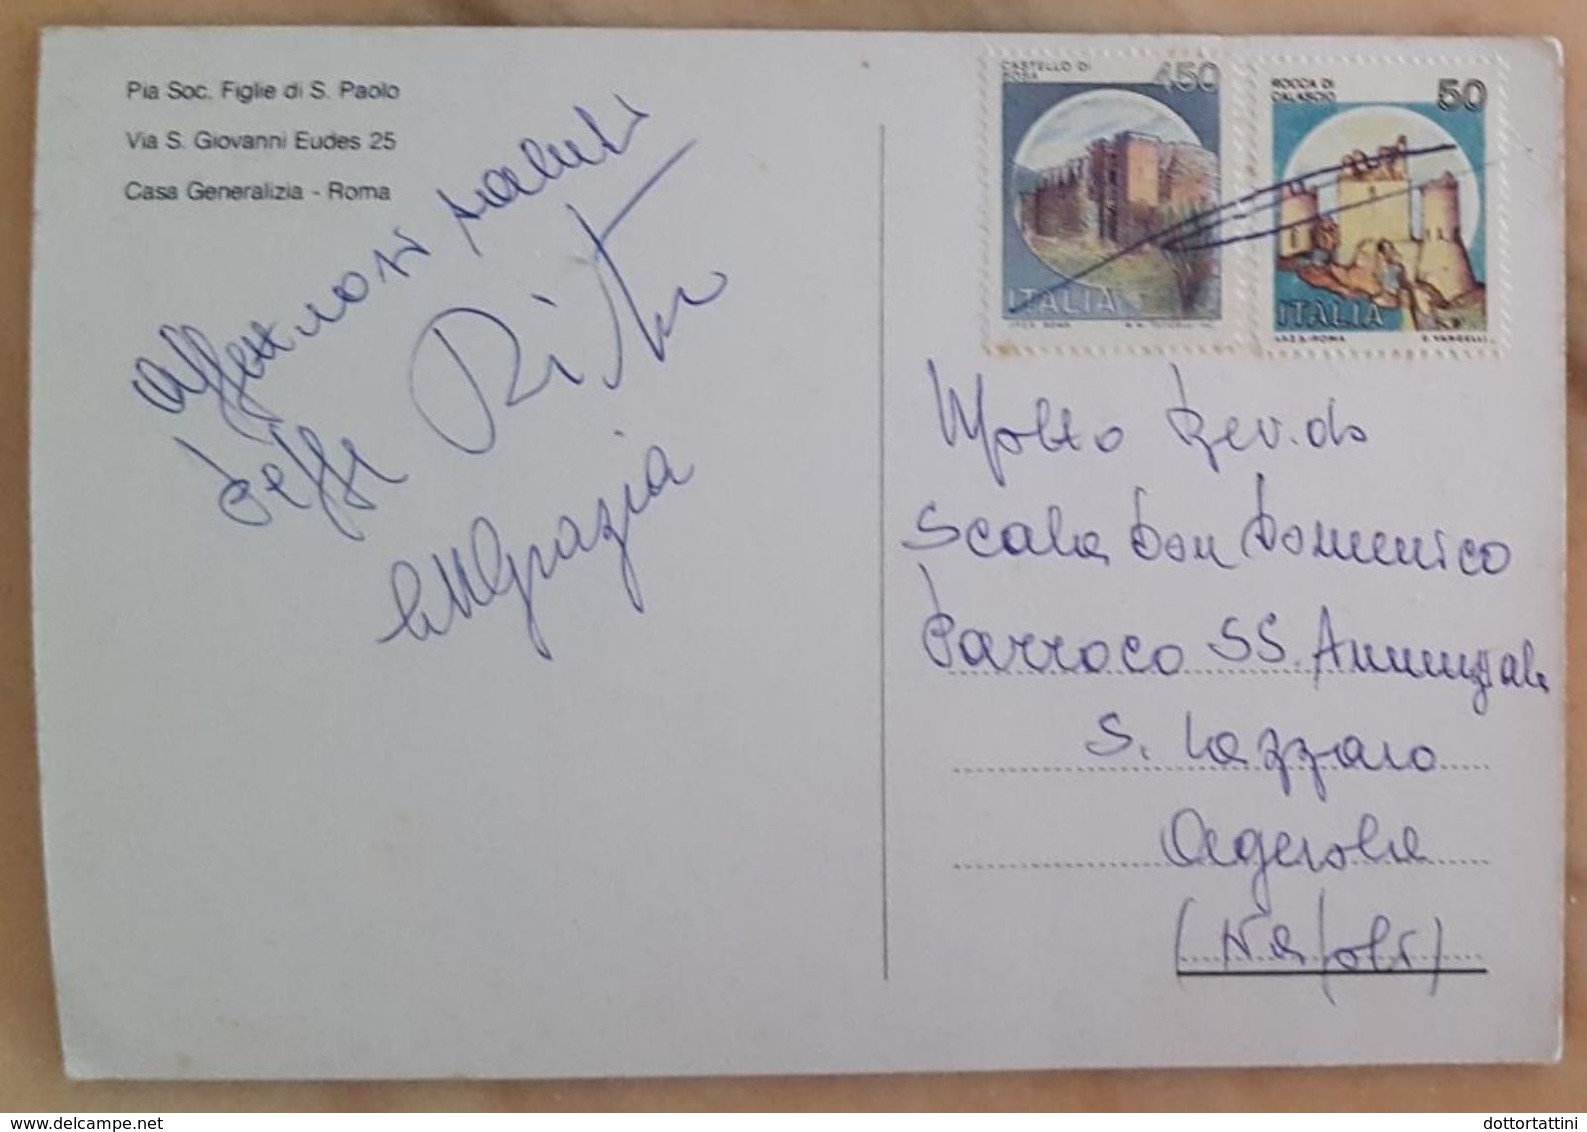 Pia Soc. Figlie di S. Paolo
Via S. Giovanni Eudes 25
Casa Generalizia - Roma
Affettuosi saluti
Grazia
CASTELLO DI
450
ITALIA
I.P.Z.S. ROMA
ROCCA DI
CALASCIO
50
ITALIA
I.P.Z.S.-ROMA
E. VANGELLI
Molto Rev.do
Scala Don Domenico
Parroco SS. Annunziata
S. Lazzaro
Agerola
(Napoli)
www.delcampe.net
dottortattini